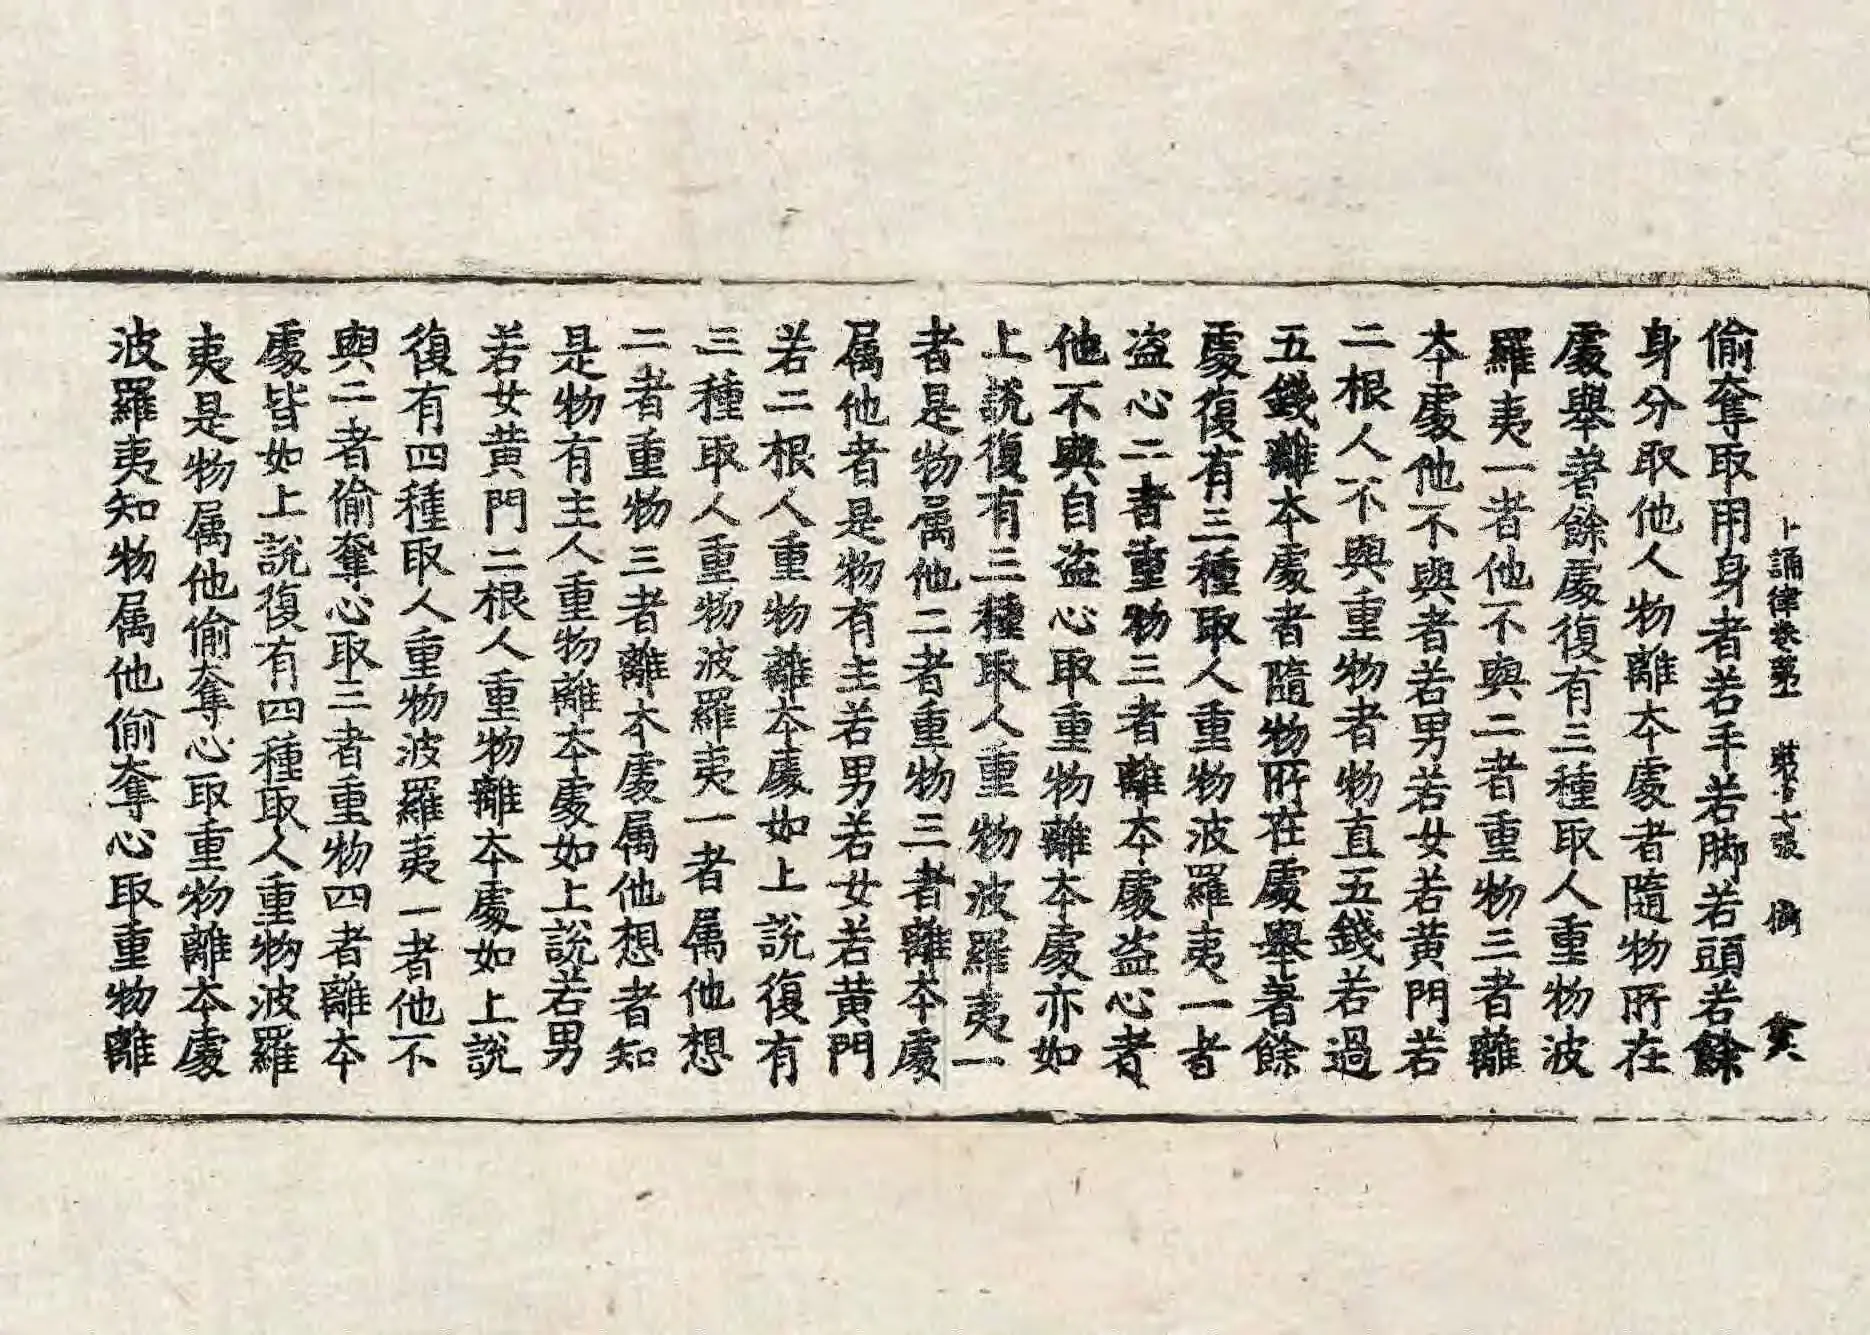 誦律卷第 七張
偷奪取用身者若手若脚若頭若餘
身分取他人物離夲處者隨物所在
處舉著餘處復有三種取人重物波
羅夷一者他不與二者重物三者離
夲處他不與者若男若女若黄門若
二根人不與重物者物直五錢若過
五錢離夲處者隨物所在處舉著餘
處復有三種取人重物波羅夷一者
盗心二者重物三者離夲處盗心者
他不與自盗心取重物離夲處亦如
上說復有三種取人重物波羅夷一
者是物属他二者重物三者離夲處
属他者是物有主若男若女若黄門
若二根人重物離夲處如上說復有
三種取人重物波羅夷一者属他想
二者重物三者離夲處属他想者知
是物有主人重物離夲處如上說若男
若女黄門二根人重物離夲處如上說
復有四種取人重物波羅夷一者他不
與二者偷奪心取三者重物四者離夲
處皆如上說復有四種取人重物波羅
夷是物属他偷奪心取重物離夲處
波羅夷知物属他偷奪心取重物離